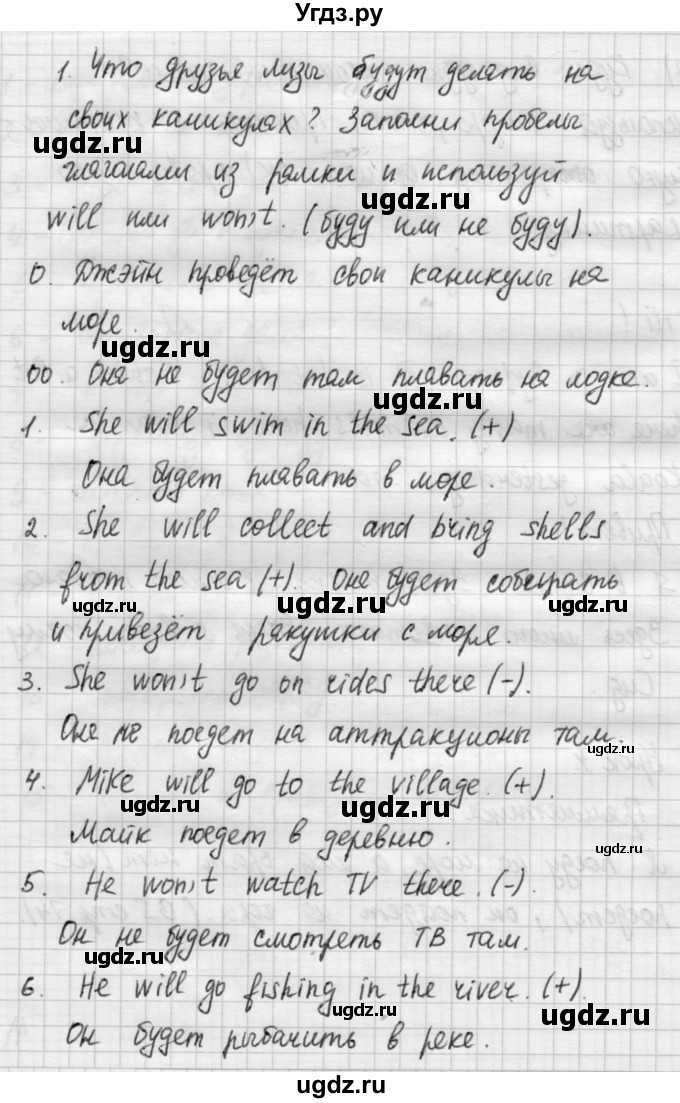 Угдз.ру
1. Что друзья лизы будут делать на
своих каникулах? Заполни пробелы
глаголами из рамки и используй
will или won,t. (буду или не буду).
0. Джэйн проведёт свои каникулы на
море.
00. Она не будет там плавать на лодке.
1. She will swim in the sea. (+)
Она будет плавать в море.
2. She will collect and bring shells
from the sea (+). Она будет собирать
и привезёт ракушки с моря.
3. She won,t go on rides there (-).
Она не поедет на аттракционы там.
4. Mike will go to the village. (+).
Майк поедет в деревню.
5. He won,t watch TV there. (-).
Он не будет смотреть ТВ там.
6. He will go fishing in the river. (+).
Он будет рыбачить в реке.
ugdz.ru